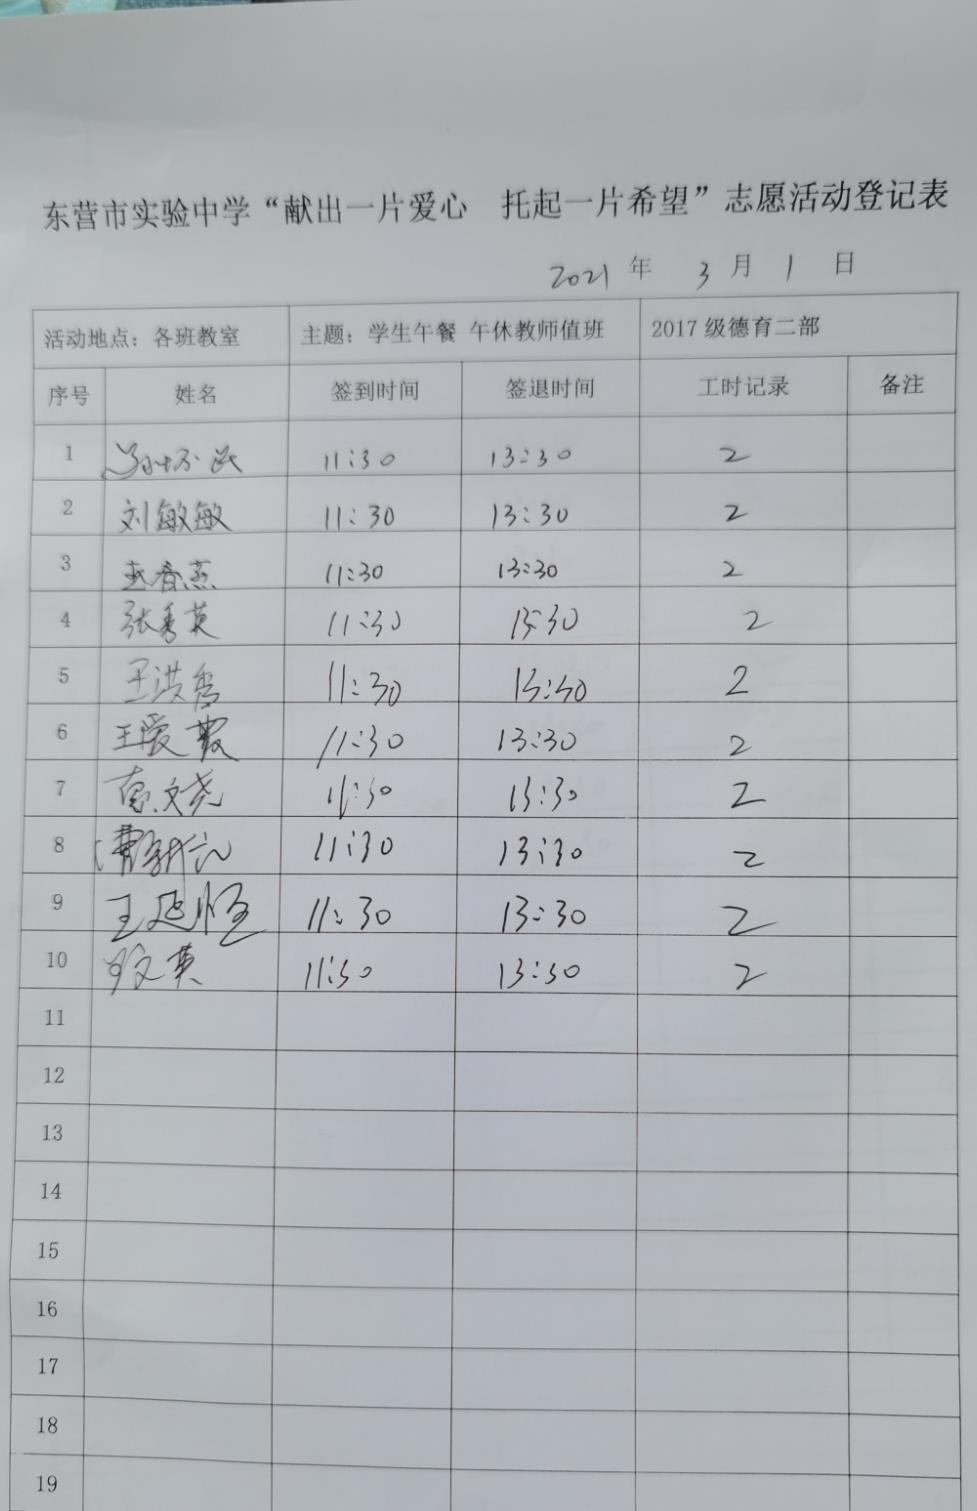 东营市实验中学“献出一片爱心 托起一片希望”志愿活动登记表
2021 年 3 月 1 日
活动地点：各班教室 主题：学生午餐 午休教师值班 2017 级德育二部
序号 姓名 签到时间 签退时间 工时记录 备注
1 11:30 13:30 2
2 刘敏敏 11:30 13:30 2
3 春燕 11:30 13:30 2
4 张秀英 11:30 13:30 2
5 王洪秀 11:30 13:30 2
6 王爱 11:30 13:30 2
7 文尧 11:30 13:30 2
8 费 11:30 13:30 2
9 王延恒 11:30 13:30 2
10 文英 11:30 13:30 2
11
12
13
14
15
16
17
18
19